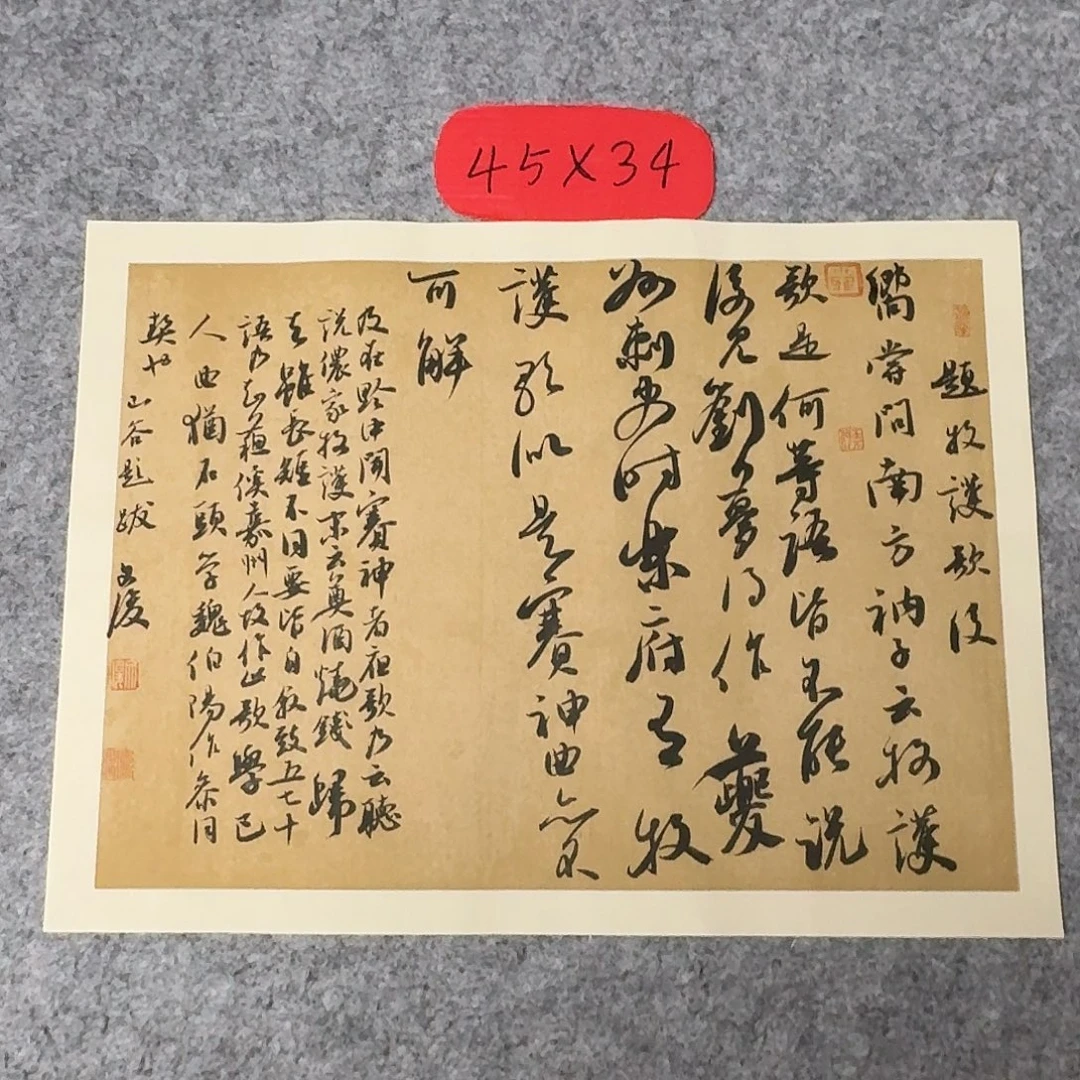 45X34
題牧護歌後
嚮嘗問南方衲子云牧護
歌是何等語皆不能說
後見劉夢得作夔
州刺史時樂府有牧
護歌似是賽神曲亦不
可解
及在黔中聞賽神者夜歌乃云聽
說儂家牧護末云奠酒燒錢歸
去雖長短不同要皆自敘致五七十
語乃知蘇傒嘉州人故作此歌學巴
人曲猶石頭學魏伯陽作參同
契也 山谷題跋